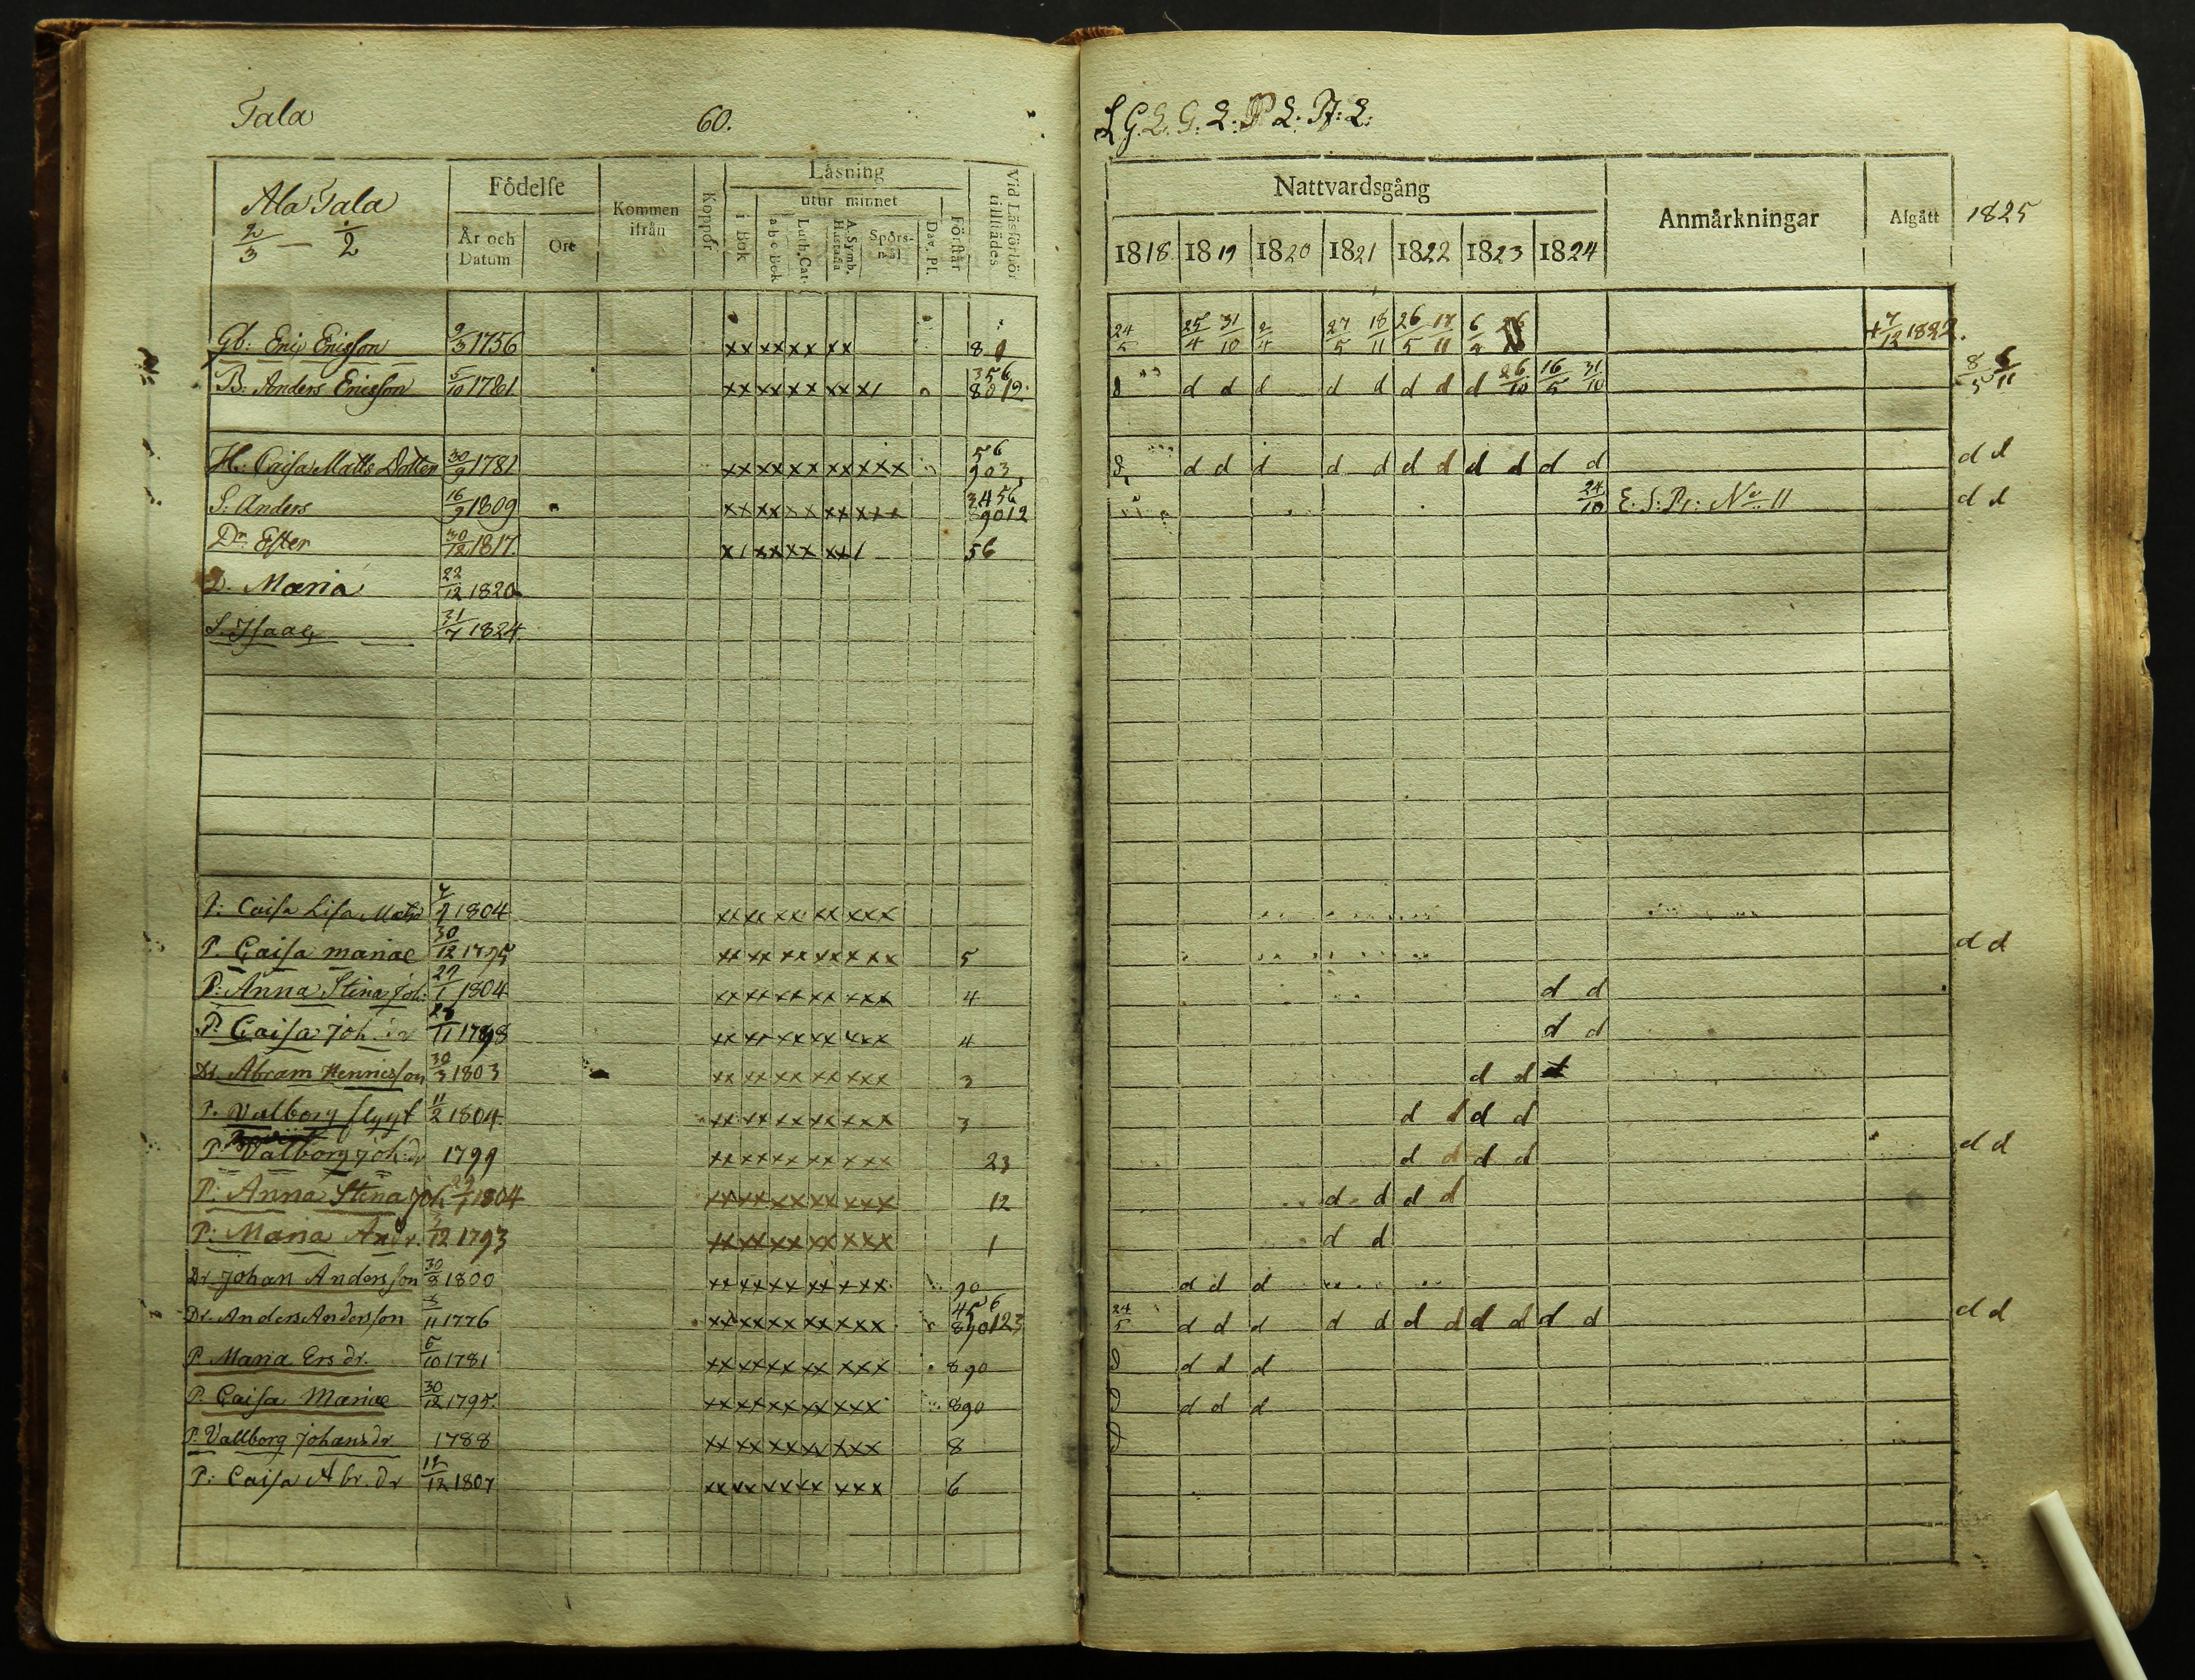 Tala
60.
Ala Tala
2/3 — 2
Födelse
År och Datum
Ort
Kommen ifrån
Koppor
Läsning
i Bok
utur minnet
a b c Bok
Luth. Cat.
A. Symb. Hustafla
Spörsmål
Dav. Ps.
Förstår
Vid Läsförhör tillstädes
Gb: Eric Ericsson 9/3 1756 xx xx xx xx 8
B: Anders Ericsson 5/10 1781 xx xx xx xx x/ 356 8 0 12
H: Caisa Matts Dotter 30/9 1781 xx xx xx xx xxx 56 903
S: Anders 16/9 1809 xx xx xx xx xxx 3456 89012
Dr. Ester 30/12 1817 x/ xx xx xx / 56
D. Maria 22/12 1820
S. Isaac 31/7 1824
P: Caisa Lisa 1804 xx xx xx xx xxx
P. Caisa mariae 30/12 1795 xx xx xx xx xxx 5
P: Anna Stina Joh: 27/1 1804 xx xx xx xx xxx 4
P. Caisa Joh. dr 1798 xx xx xx xx xxx 4
Dr. Abram Hennicsson 30/3 1803 xx xx xx xx xxx 3
P. Valborg flygt 11/2 1804 xx xx xx xx xxx 3
P. Valborg Joh: dr 1799 xx xx xx xx xxx 23
P: Anna Stina Joh. 27/1 1804 xx xx xx xx xxx 12
P: Maria And. 12 1793 xx xx xx xx xxx 1
Dr Johan Andersson 30/8 1800 xx xx xx xx xxx 90
Dr. Anders Andersson 11 1776 xx xx xx xx xxx 456 890123
P. Maria Ers dr. 5/10 1781 xx xx xx xx xxx 890
P. Caisa Mariae 30/12 1795 xx xx xx xx xxx 890
P. Vallborg Johans dr 1788 xx xx xx xx xxx 8
P: Caisa Abr. dr 12/12 1807 xx xx xx xx xxx 6
L G. L. G. L. P L. P: L:
Nattvardsgång
Anmärkningar
Afgått
1825
1818 1819 1820 1821 1822 1823 1824
24/5 25/4 31/10 2/4 27/5 18/11 26/5 17/11 6/4 + 7/12 1822.
d d d d d d d d d 26/10 16/5 31/10 8/5 6/11
d d d d d d d d d d d d d d
24/10 E. S. Pr: No 11 d d
d d
d d
d d
d d
d d d d
d d d d d d
d d d d
d d
d d d
24/5 d d d d d d d d d d d d d
d d d d
d d d d
d